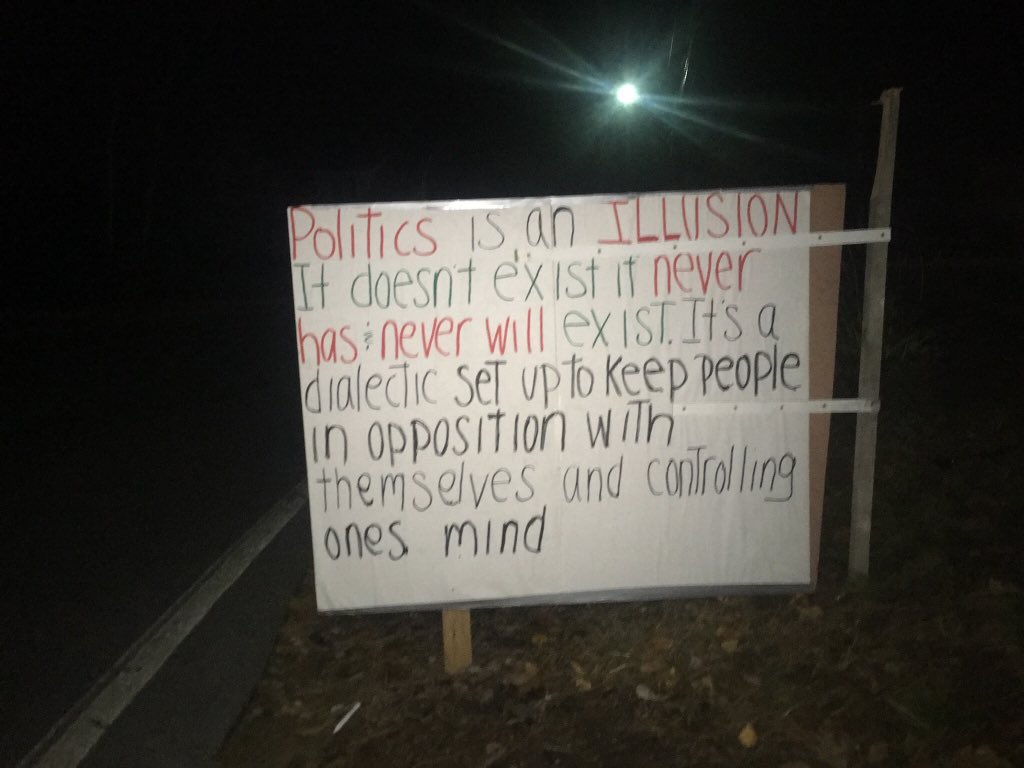 Politics is an ILLUSION
It doesn't exist it never
has & never will exist. It's a
dialectic set up to keep people
in opposition with
themselves and controlling
ones mind